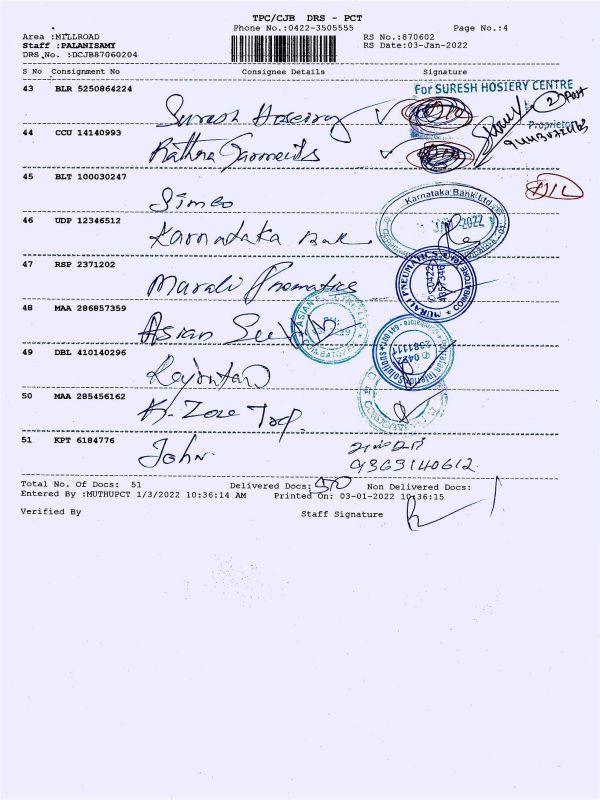 TPC/CJB DRS - PCT
Phone No.:0422-3505555 Page No.:4
Area :MILLROAD RS No.:870602
Staff :PALANISAMY RS Date:03-Jan-2022
DRS.No. :DCJB87060204
S No Consignment No Consignee Details Signature
43 BLR 5250864224 For SURESH HOSIERY CENTRE
Suresh Hosiery
Proprietor
44 CCU 14140993
Rathna Garments
45 BLT 100030247
Simco
46 UDP 12346512
Karnataka Bank Ltd
2022
Karnataka
47 RSP 2371202
Murali Pnematics
MURALI PNEUMATICS COIMBATORE
48 MAA 286857359
Asian
49 DBL 410140296
50 MAA 285456162
51 KPT 6184776
John
9363140612
Total No. Of Docs: 51 Delivered Docs: Non Delivered Docs:
Entered By :MUTHUPCT 1/3/2022 10:36:14 AM Printed On: 03-01-2022 10:36:15
Verified By Staff Signature